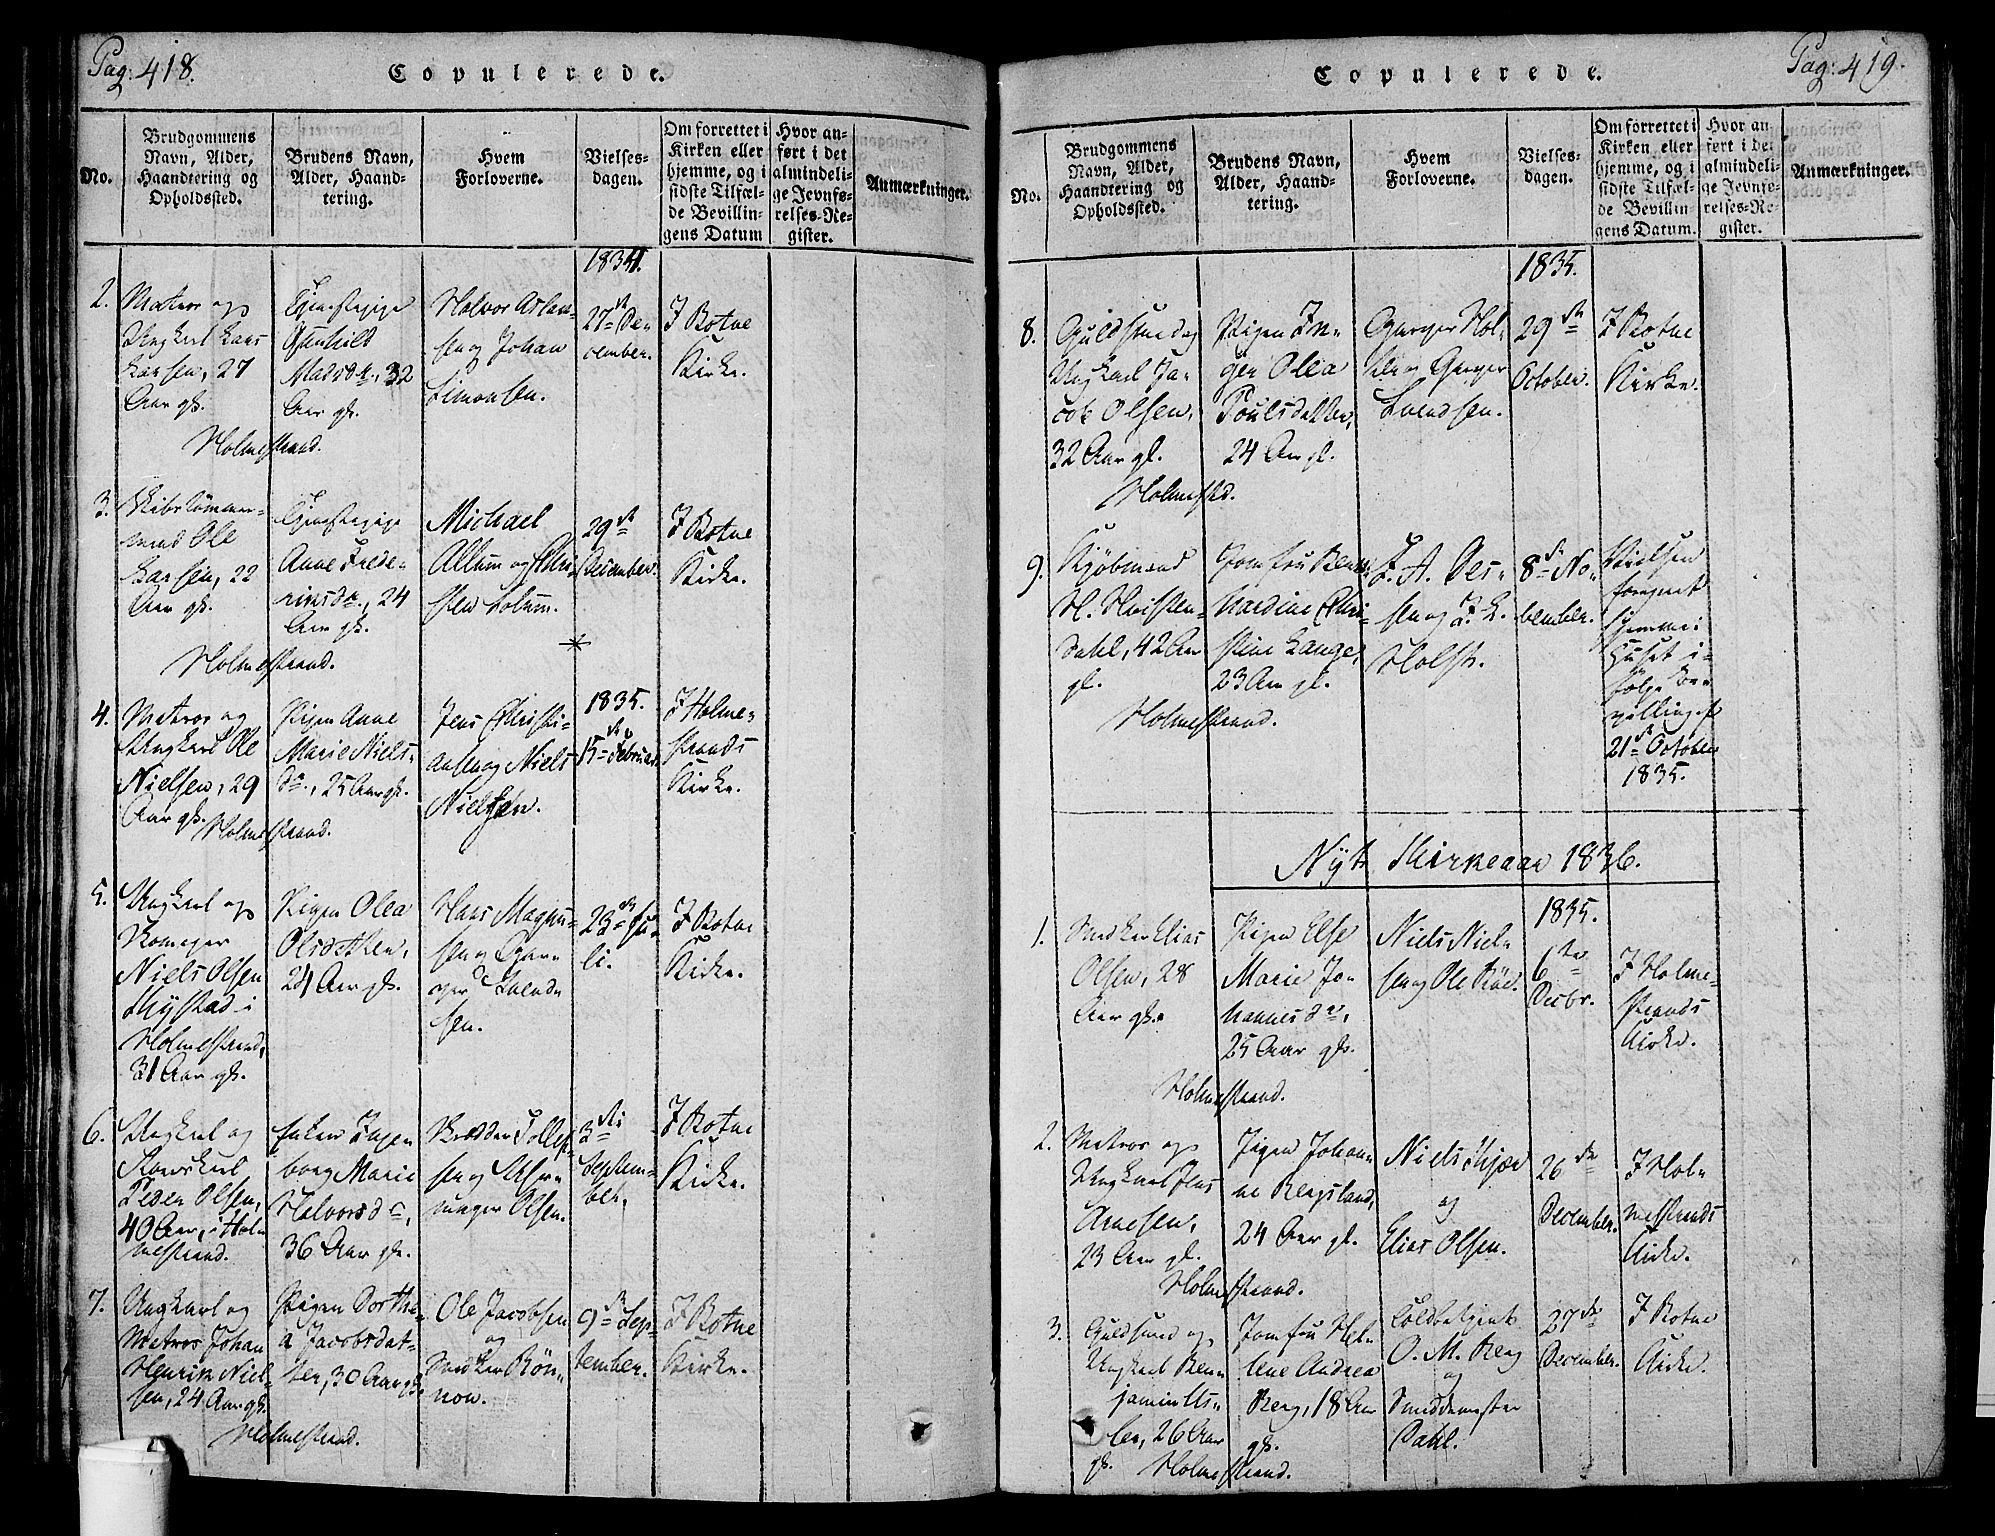 Pag: 418.
Copulerede.
No.
Brudgommens
Navn, Alder,
Haandtering og
Opholdssted.
Brudens Navn,
Alder, Haand-
tering.
Hvem
Forloverne.
Vielses-
dagen.
Om forrettet i
Kirken eller
hjemme, og i
sidste Tilfæl-
de Bevillin-
gens Datum
Hvor an-
ført i det
almindeli-
ge Jevnfø-
relses-Re-
gister.
Anmærkninger.
1834.
2.
Matros og
Ungkarl Lars
Larsen, 27
Aar gl.
Holmestrand.
Tjenestepige
Gunhild
Madsdr., 32
Aar gl.
Halvor Aslan-
sen og Johan
Simonsen.
27de De-
cember.
I Botne
Kirke.
3.
Skibstømmer-
mand Ole
Larsen, 22
Aar gl.
Holmestrand.
Tjenestepige
Anne Frede-
riksdr., 24
Aar gl.
Michael
Allum og Chri-
sten Solum.
29de
December.
I Botne
Kirke.
4.
Matros og
Ungkarl Ole
Nielsen, 29
Aar gl.
Holmestrand.
Pigen Anne
Marie Niels-
dr., 25 Aar gl.
Jens Christi-
ansen og Niels
Nielsen.
1835.
15de Februar.
I Holme-
strands
Kirke.
5.
Ungkarl og
Niels Olsen
i
Holmestrand,
31 Aar gl.
Pigen Olea
Olsdatter,
24 Aar gl.
Hans Magnu-
sen og Gar-
ger Svend-
sen.
23de Ju-
li.
I Botne
Kirke.
6.
Ungkarl og
Peder Olsen,
40 Aar, i Hol-
mestrand.
Enken Ingen-
borg Marie
Halvorsdr.,
36 Aar gl.
Skrædder Tollef-
sen og
Olsen.
3die
Septem-
ber.
I Botne
Kirke.
7.
Ungkarl og
Matros Johan
Henrik Niel-
sen, 24 Aar gl.
Holmestrand.
Pigen Dorthe-
a Jacobsdat-
ter, 30 Aar gl.
Ole Jacobsen
og
Snedker Rön-
now.
9de Sep-
tember.
I Botne
Kirke.
Pag: 419.
Copulerede.
No.
Brudgommens
Navn, Alder,
Haandtering og
Opholdssted.
Brudens Navn,
Alder, Haand-
tering.
Hvem
Forloverne.
Vielses-
dagen.
Om forrettet i
Kirken eller
hjemme, og i
sidste Tilfæl-
de Bevillin-
gens Datum.
Hvor an-
ført i det
almindeli-
ge Jevnfø-
relses-Re-
gister.
Anmærkninger.
1835.
8.
Guldsmed og
Ungkarl Ja-
cob Olsen,
32 Aar gl.
Holmestd.
Pigen In-
ger Olea
Poulsdatter,
24 Aar gl.
Garger Hol-
og Garger
Svendsen.
29de
October.
I Botne
Kirke.
9.
Kjøbmand
H. Hvisten-
dahl, 42 Aar
gl.
Holmestrand.
Jomfru Bern-
hardine Chri-
stine Lange,
23 Aar gl.
og J. L.
Holst.
8de No-
vember.
Vielsen
foregaaet
hjemme i
Huset i-
følge Be-
villing af
21de October
1835.
Nyt Kirkeaar 1836.
1835.
1.
Snedker Elias
Olsen, 28
Aar gl.
Holmestrand.
Pigen Else
Marie Jo-
hannesdr.,
25 Aar gl.
Niels Niel-
sen og Ole Röe.
6te
Decbr.
I Holme-
strands
Kirke.
2.
Matros og
Ungkarl Jens
Arnesen,
23 Aar gl.
Holmestrand.
Pigen Johan-
ne Bergsland,
24 Aar gl.
Niels Kjær
og
Elias Olsen.
26de
December.
I Hol-
mestrands
Kirke.
3.
Guldsmed og
Ungkarl Ben-
jamin
26 Aar
gl. Holmestrand.
Jomfru Hel-
lene Andrea
Berg, 18 Aar
gl.
Toldbetjent
O. M. Berg
og
Smedemester
Dahl.
27de
December.
I Botne
Kirke.